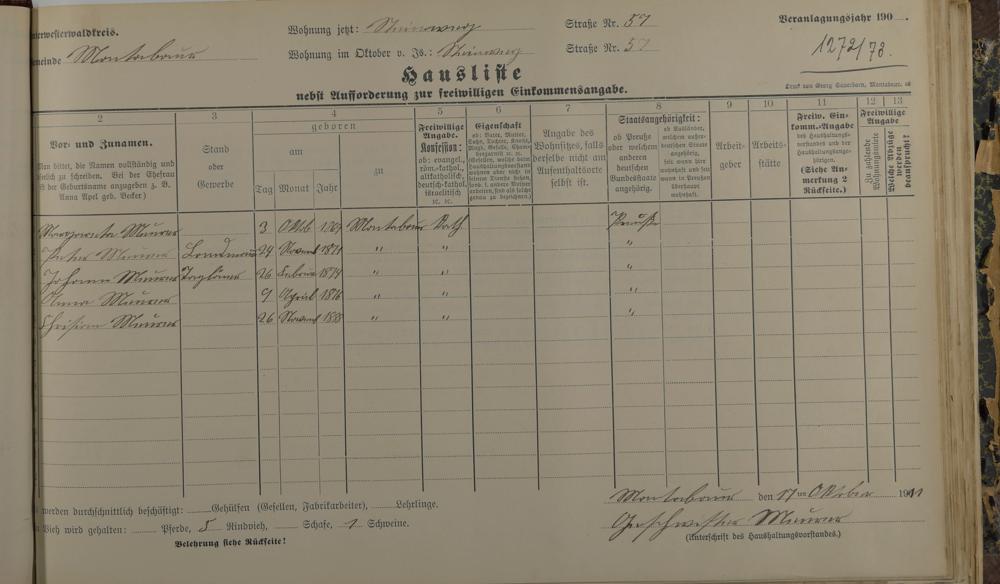 nterwesterwaldkreis.
Wohnung jetzt: Steinweg Straße Nr. 57
Veranlagungsjahr 190
emeinde Montabaur
Wohnung im Oktober v. Js.: Steinweg Straße Nr. 57
1272/73.
Hausliste
nebst Aufforderung zur freiwilligen Einkommensangabe.
Druck von Georg Sauerborn, Montabaur.
2 3 4 5 6 7 8 9 10 11 12 13
Vor- und Zunamen.
Man bittet, die Namen vollständig und
zu schreiben. Bei der Ehefrau
ist der Geburtsname anzugeben z. B.
Anna Apel geb. Becker)
Stand
oder
Gewerbe
geboren
am
Tag Monat Jahr
zu
Freiwillige
Angabe.
Konfession:
ob: evangel.,
röm.-kathol.,
altkatholisch,
deutsch-kathol.
israelitisch
ꝛc. ꝛc.
Eigenschaft
ob: Vater, Mutter,
Sohn, Tochter,
Angabe des
Wohnsitzes, falls
derselbe nicht am
Aufenthaltsorte
selbst ist.
Staatsangehörigkeit:
ob Preuße
oder welchem
anderen
deutschen
Bundesstaate
angehörig.
ob Ausländer,
welchem außer-
deutschen Staate
angehörig,
seit wann hier
wohnhaft und seit
wann in Preußen
überhaupt
wohnhaft.
Arbeit-
geber
Arbeits-
stätte
Freiw. Ein-
komm.-Angabe
des Haushaltungs-
vorstandes und der
Haushaltungsange-
hörigen.
(Siehe An-
merkung 2
Rückseite.)
Freiwillige
Angabe
Zu zahlende
Wohnungsmiete
Welche Abzüge
werden
beansprucht?
Margareta Maurer 3 Oktb. Montabaur Kath Preuße
Peter Maurer 24 Novemb 1871 " " "
Johann Maurer Taglöner 26 Februar 1874 " " "
Anna Maurer 9 April 1876 " " "
Christian Maurer 26 Novemb " " "
werden durchschnittlich beschäftigt: Gehülfen (Gesellen, Fabrikarbeiter), Lehrlinge.
Vieh wird gehalten: Pferde, 5 Rindvieh, Schafe, 1 Schweine.
Belehrung siehe Rückseite!
Montabaur den 17ten Oktober
Geschwister Maurer
(Unterschrift des Haushaltungsvorstandes.)